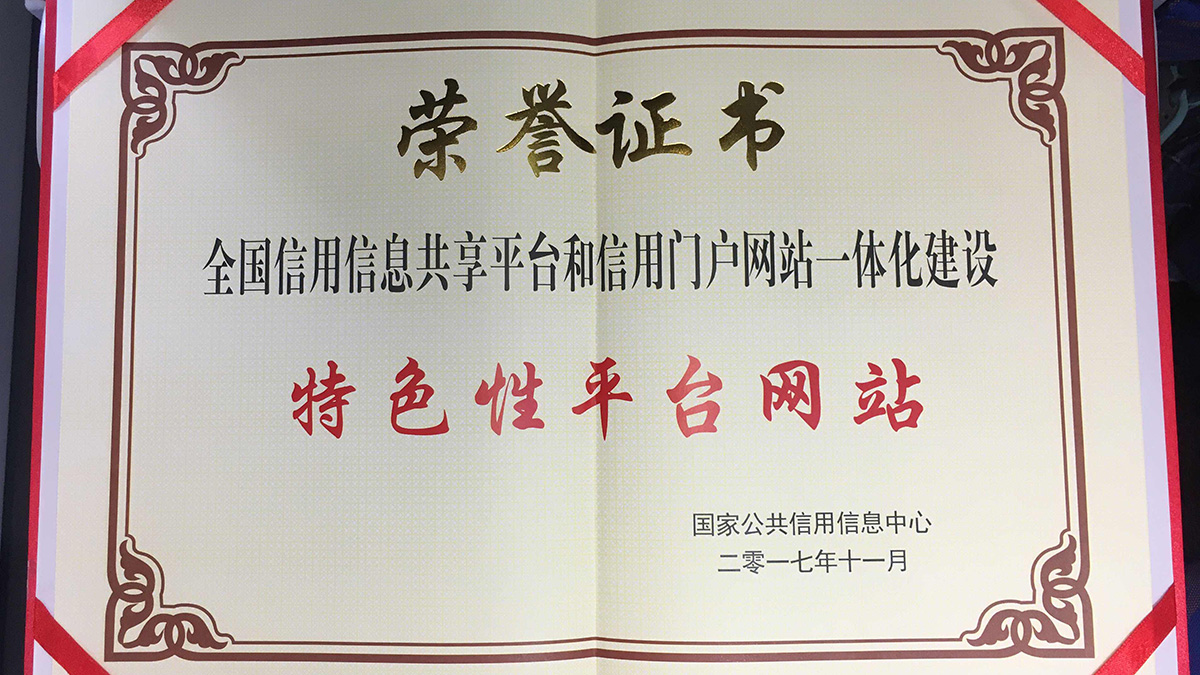 荣誉证书
全国信用信息共享平台和信用门户网站一体化建设
特色性平台网站
国家公共信用信息中心
二零一七年十一月